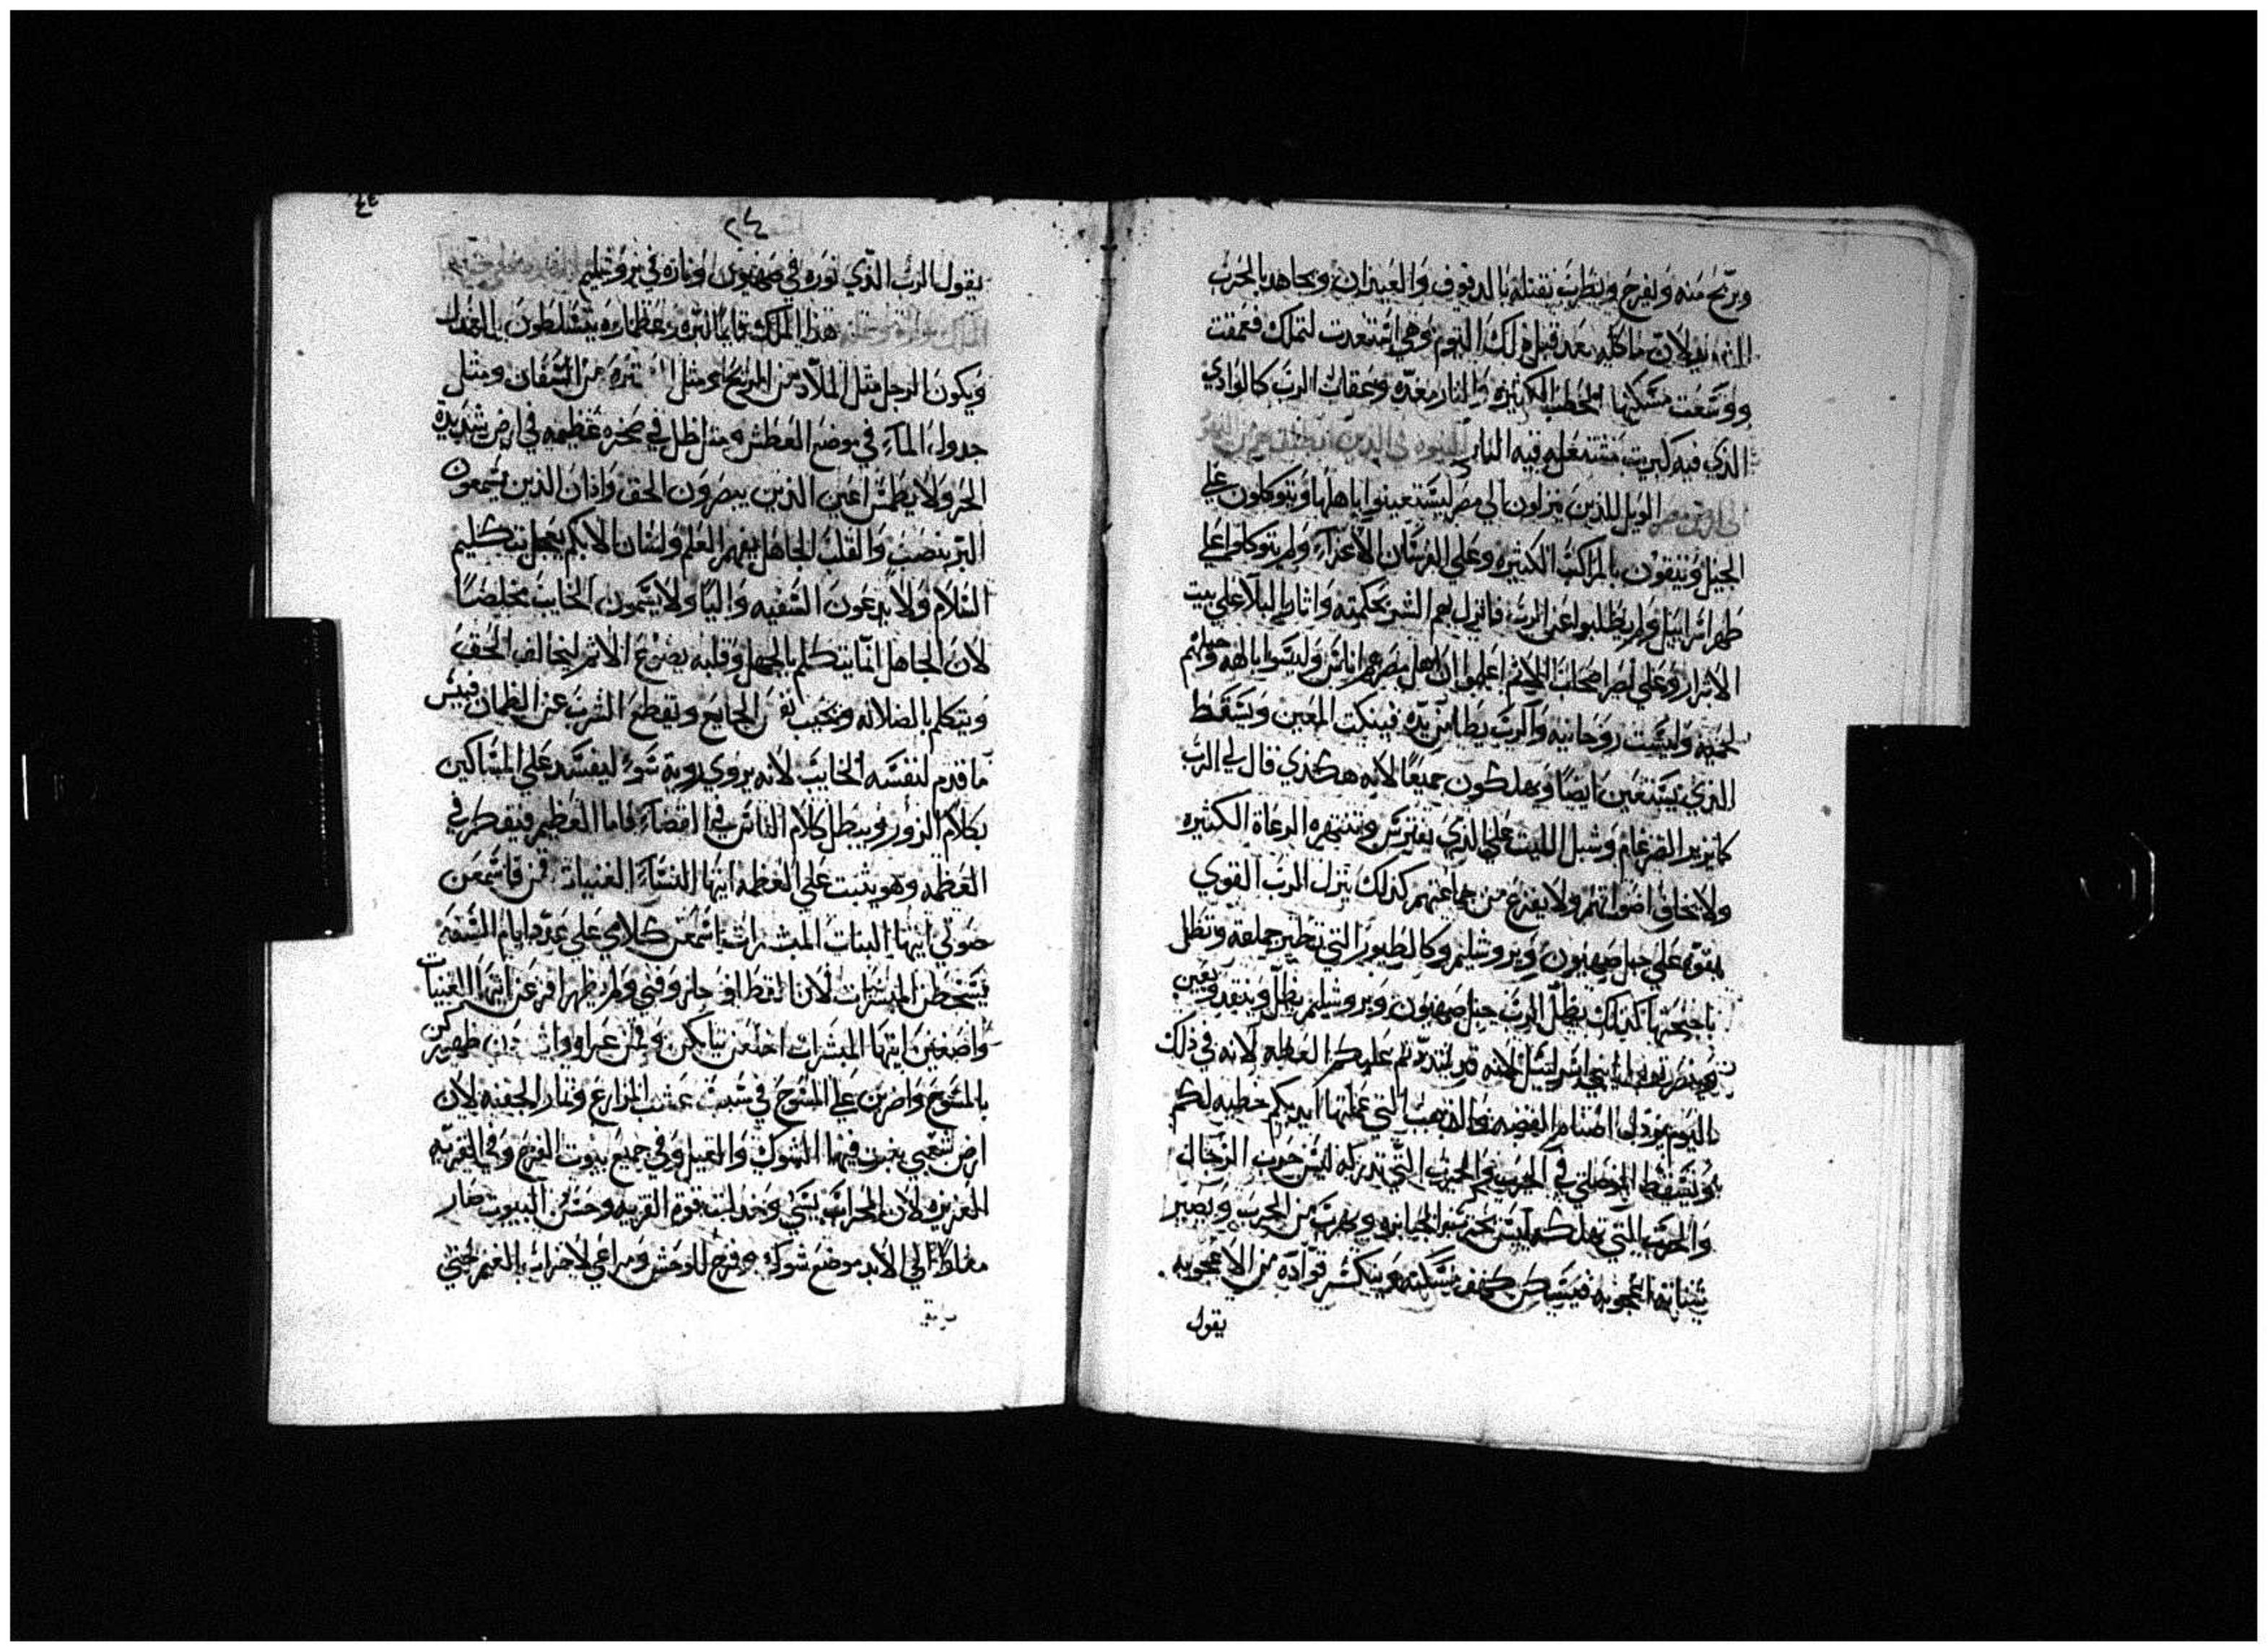 ويريح منه ويفرح ويطرب بقتله بالدفوف والعيدان ويجاهد بالحرب
لان ماكله بعد قبل ذلك اليوم وهي استعدت لتملك فعمقت
ووسعت مسكنها الحطب الكثيره والنار معده وعقاب الرب كالوادي
الذي فيه كبريت تشتعل فيه النار النبوه في الذين
الي ارض مصر الويل للذين ينزلون الي مصر ليستعينوا باهلها ويتوكلون علي
الخيل ويثقون بالمراكب الكثيره وعلي الفرسان الاعزاء ولم يتوكلوا علي
طهر اسراييل ولم يطلبوا عن الرب فانزل بهم الشر بحكمته واثار البلا علي بيت
الاشرار وعلي اصحاب الاثم اعلموا ان اهل مصر هم اناس وليسوا بالهه وخيلهم
لحميه وليست روحانيه والرب يطامن يده فينكت المعين ويسقط
الذي يستعين ايضا ويهلكون جميعا لانه هكذي قال لي الرب
كما يزير الضرغام وشبل الليث علي الذي يفترس وتنتهره الرعاة الكثيره
ولا يخاف اصواتهم ولا يفزع من جماعتهم كذلك ينزل الرب القوي
بقوته علي جبل صهيون ويروشليم وكالطيور التي تطير جملعة وتظل
باجنحتها كذلك يظل الرب جبل صهيون ويروشليم يظل وينقد ويعين
بني اسراييل لانه قد شددتم عليكم العظه لانه في ذلك
اليوم يردل اصنام الفضه والذهب التي عملتها ايديكم خطيه لكم
ويسقط الموصلي في الحرب والحرب التي تدركه ليس حرب الرجال
والحرب التي تهلكه ليس بحرب الجبابره ويهرب من الحرب ويصير
شبانه اعجوبه فيسكن كهف مسكنه وينكسر قواده من الاعجوبه
يقول
٢٤
يقول الرب الذي نوره في صهيون وناره في يروشليم
هذا الملك قايما لبره وعظماوه يتسلطون بالعدل
ويكون الرجل مثل الملاذ من الريح ومثل الستره من السفان ومثل
جدول الماء في موضع العطش ومثل ظل في صخره عظيمه في ارض شديدة
الحر ولا يطمس اعين الذين يبصرون الحق واذان الذين يسمعون
البر ينصب والقلب الجاهل يفهم العلم ولسان الابكم يعجل بتكليم
السلام ولا يدعون السفيه واليا ولا يسمون الخايب مخلصا
لان الجاهل انما يتكلم بالجهل وقلبه يصنع الاثم ليخالف الحق
ويتكلم بالضلاله ويخيب نفس الجايع ويقطع الشرب عن الظمان فبيس
ما قدم لنفسه الخايب لانه يروي روية سوء ليفسد علي المساكين
بكلام الزور ويبطل كلام الباس في القضاء فاما العظيم فيفكر في
العظمه وهو يثبت علي العظمه ايتها النساء الغنيات قمن فاسمعن
صوتي ايتها البنات المبشرات اسمعن كلامي علي عدد ايام السنه
يسخطن المبشرات لان القطاف جاز وفني ولم يظهر افزعن ايتها الغنيات
واضغين ايتها المبشرات اخلعن ثيابكن وقمن عراه وا ظهوركن
بالمسوح واضربن علي المسوح في سبب عشب المزارع وثمار الجفنه لان
ارض شعبي ينبت فيها الشوك والقيل وفي جميع بيوت الفرح وفي القريه
العزيزه لان المحراب ينسي وخذلت قوم القريه وحسن البيوت صار
مغارا الي الابد موضع شوك وفرح للوحش ومراعي لاحزاب الغنم حتي